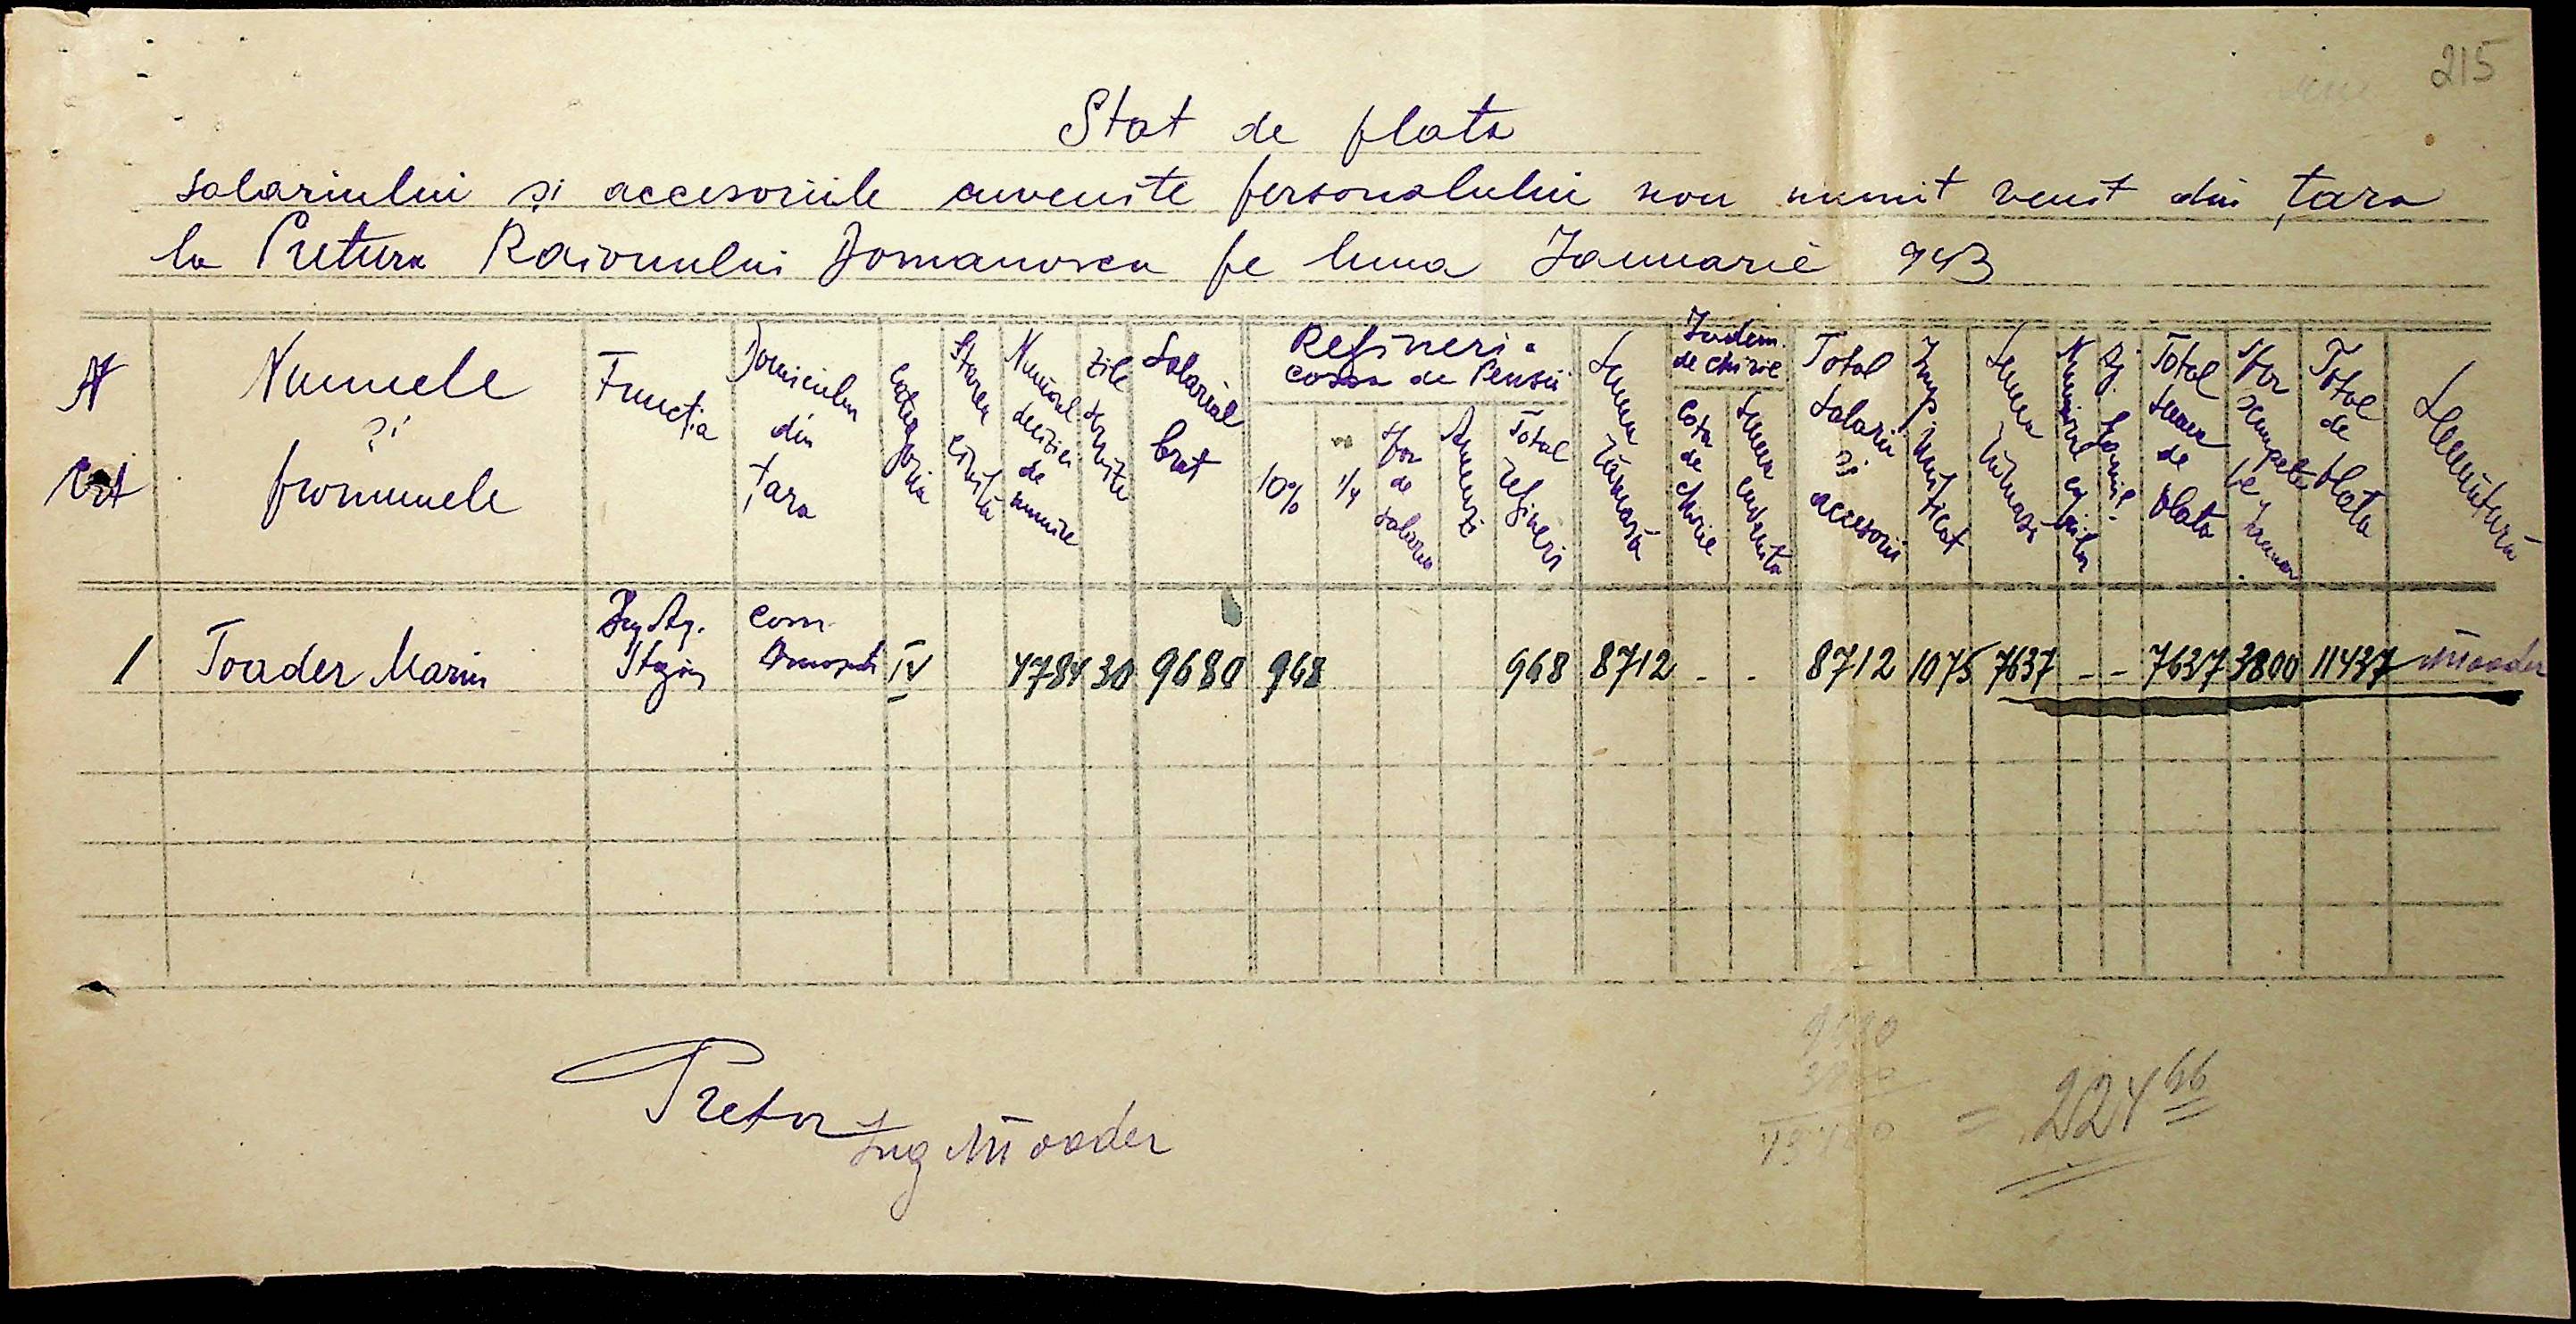 215
Stat de plata
salariului și accesoriile cuvenite personalului nou numit venit din țara
la Pretura Raionului Domanovca pe luna Ianuarie 943
N Crt
Numele și pronumele
Funcția
Domiciului din țara
Categoria
Starea civilă
Numărul deciziei de numire
Zile servite
Salarial brut
Rețineri casa de Pensii
10%
1/4
Spor de salariu
Amenzi
Total rețineri
Suma rămasă
Indem. de chirie
Cota de chirie
Suma cuvenită
Total Salarii și accesorii
Imp. unificat
Suma rămasă
Numărul copiilor
Aj. familie
Total suma de plata
Spor scumpete
Total de plata
Semnătura
1 Toader Marin Ing Ag. Stagiar com IV 4784 30 9680 968 968 8712 - - 8712 1075 7637 - - 7637 3800 11437 MToader
Pretor
Ing MToader
= 224 66